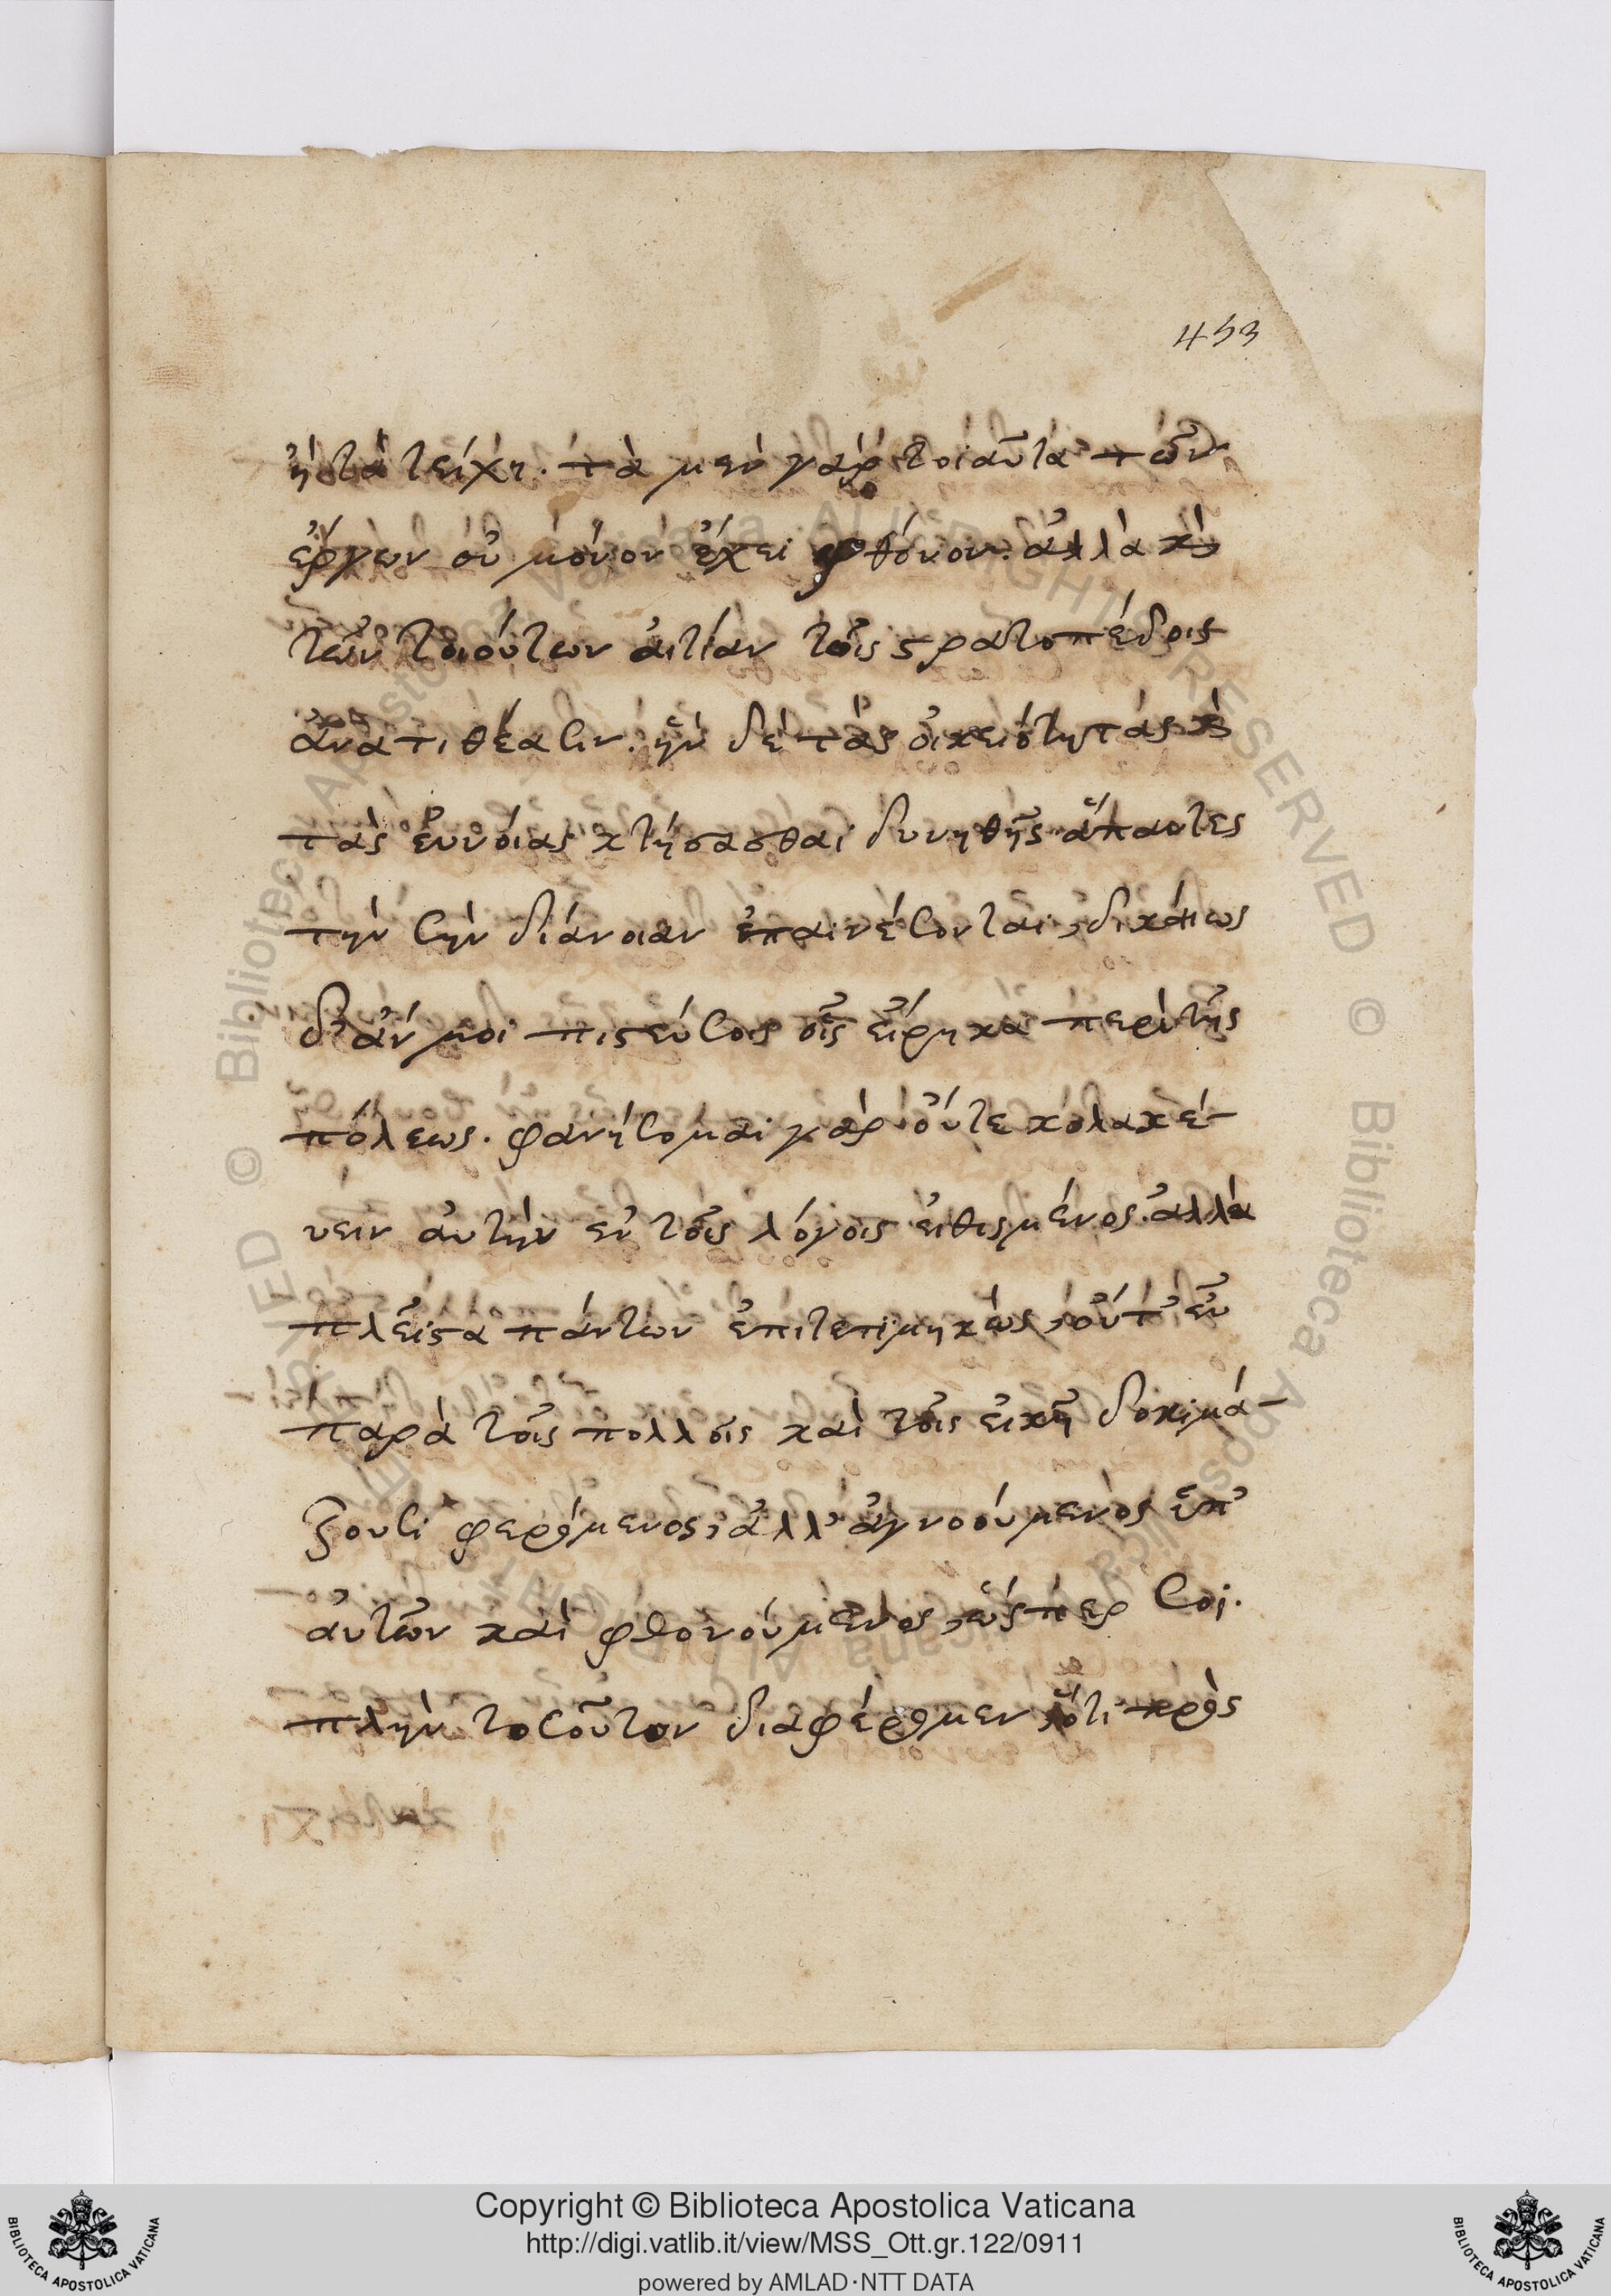 453
ἢ τὰ τείχη. τὰ μὲν γὰρ τοιαῦτα τῶν
ἔργων οὐ μόνον ἔχει φθόνον. ἀλλὰ καὶ
τῶν τοιούτων ἀιτίαν τοῖς στρατοπέδοις
ἀνατιθέασιν. ἢν δὲ τὰς οἰκειότητας καὶ
τὰς ἐυνοίας κτήσασθαι δυνηθῇς ἅπαντες
τὴν σὴν διάνοιαν ἐπαινέσονται, δικαίως
δ' ἄν μοι πιστεύσοις οἷς εἴρηκα περὶ τῆς
πόλεως. φανήσομαι γὰρ οὔτε κολακέ-
υειν ἀυτὴν ἐν τοῖς λόγοις ἐιθισμένος. ἀλλὰ
πλεῖστα πάντων ἐπιτετιμηκὼς, οὔτ' εὖ
παρὰ τοῖς πολλοῖς καὶ τοῖς εἰκῆ δοκιμά-
ζουσι φερόμενος, ἀλλ' ἀγνοούμενος ὑπ'
ἀυτῶν καὶ φθονούμενος, ὥσπερ σοι.
πλὴν τοσοῦτον διαφέρομεν, ὅτι πρὸς
© Biblioteca Apostolica Vaticana ALL RIGHTS RESERVED © Biblioteca Apostolica Vaticana ALL RIGHTS RESERVED
Copyright © Biblioteca Apostolica Vaticana
http://digi.vatlib.it/view/MSS_Ott.gr.122/0911
powered by AMLAD·NTT DATA
BIBLIOTECA APOSTOLICA VATICANA
BIBLIOTECA APOSTOLICA VATICANA